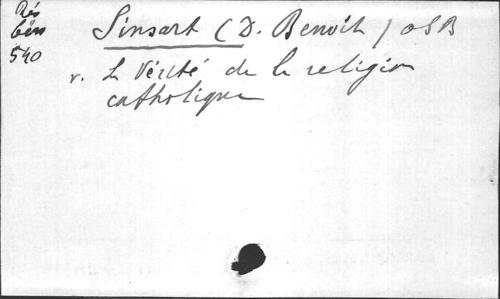 Rés
bén
540
Sinsart (D. Benoît) OSB
v. La Vérité de la religion
catholique